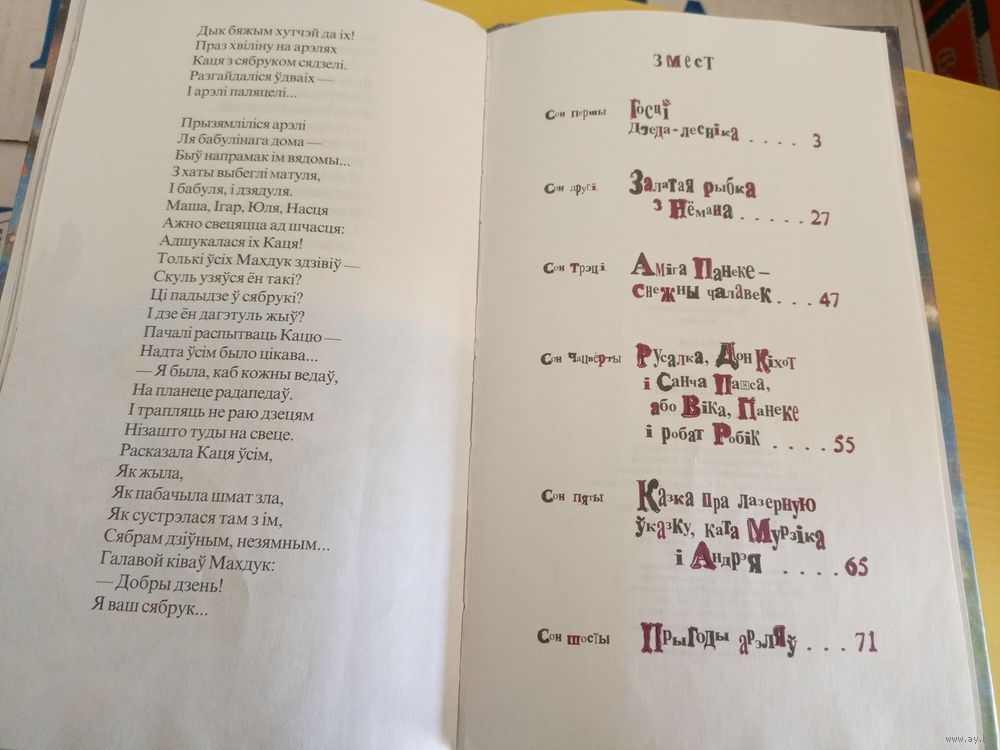 Дык бяжым хутчэй да іх!
Праз хвіліну на арэлях
Каця з сябруком сядзелі.
Разгайдаліся ўдваіх —
І арэлі паляцелі...
Прызямліліся арэлі
Ля бабулінага дома —
Быў напрамак ім вядомы...
З хаты выбеглі матуля,
І бабуля, і дзядуля.
Маша, Ігар, Юля, Насця
Ажно свецяцца ад шчасця:
Адшукалася іх Каця!
Толькі ўсіх Махдук здзівіў —
Скуль узяўся ён такі?
Ці падыдзе ў сябрукі?
І дзе ён дагэтуль жыў?
Пачалі распытваць Кацю —
Надта ўсім было цікава...
— Я была, каб кожны ведаў,
На планеце радапедаў.
І трапляць не раю дзецям
Нізашто туды на свеце.
Расказала Каця ўсім,
Як жыла,
Як пабачыла шмат зла,
Як сустрэлася там з ім,
Сябрам дзіўным, незямным...
Галавой ківаў Махдук:
— Добры дзень!
Я ваш сябрук...
Змест
Сон першы Госці
Дзеда-лесніка . . . . 3
Сон другі Залатая рыбка
з Нёмана . . . . . 27
Сон трэці Аміга Панеке —
снежны чалавек . . . 47
Сон чацвёрты Русалка, Дон Кіхот
і Санча Панса,
або Віка, Панеке
і робат Робік . . . . 55
Сон пяты Казка пра лазерную
ўказку, ката Мурзіка
і Андрэя . . . . 65
Сон шосты Прыгоды арэляў . . . 71